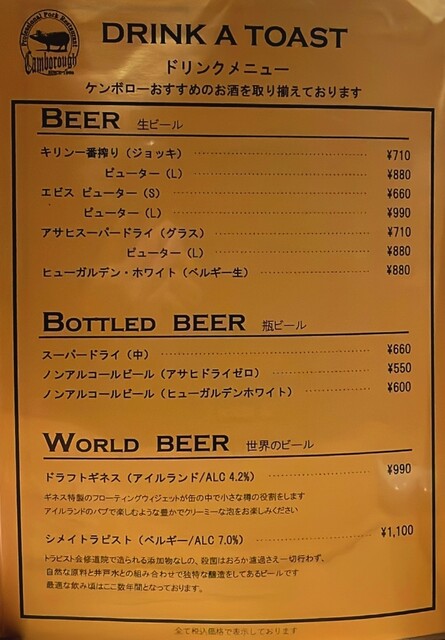 Professional Pork Restaurant
Camborough
SINCE 1998
DRINK A TOAST
ドリンクメニュー
ケンボローおすすめのお酒を取り揃えております
BEER 生ビール
キリン一番搾り（ジョッキ） ¥710
ピューター（L） ¥880
エビス ピューター（S） ¥660
ピューター（L） ¥990
アサヒスーパードライ（グラス） ¥710
ピューター（L） ¥880
ヒューガルデン・ホワイト（ベルギー生） ¥880
BOTTLED BEER 瓶ビール
スーパードライ（中） ¥660
ノンアルコールビール（アサヒドライゼロ） ¥550
ノンアルコールビール（ヒューガルデンホワイト） ¥600
WORLD BEER 世界のビール
ドラフトギネス（アイルランド/ALC 4.2%） ¥990
ギネス特製のフローティングウィジェットが缶の中で小さな樽の役割をします
アイルランドのパブで楽しむような豊かでクリーミーな泡をお楽しみください
シメイトラピスト（ベルギー/ALC 7.0%） ¥1,100
トラピスト会修道院で造られる添加物なしの、殺菌はおろか濾過さえ一切行わず、
自然な原料と井戸水との組み合わせで独特な醸造をしてあるビールです
最適な飲み頃はここ数年間となっております。
全て税込価格で表示しております